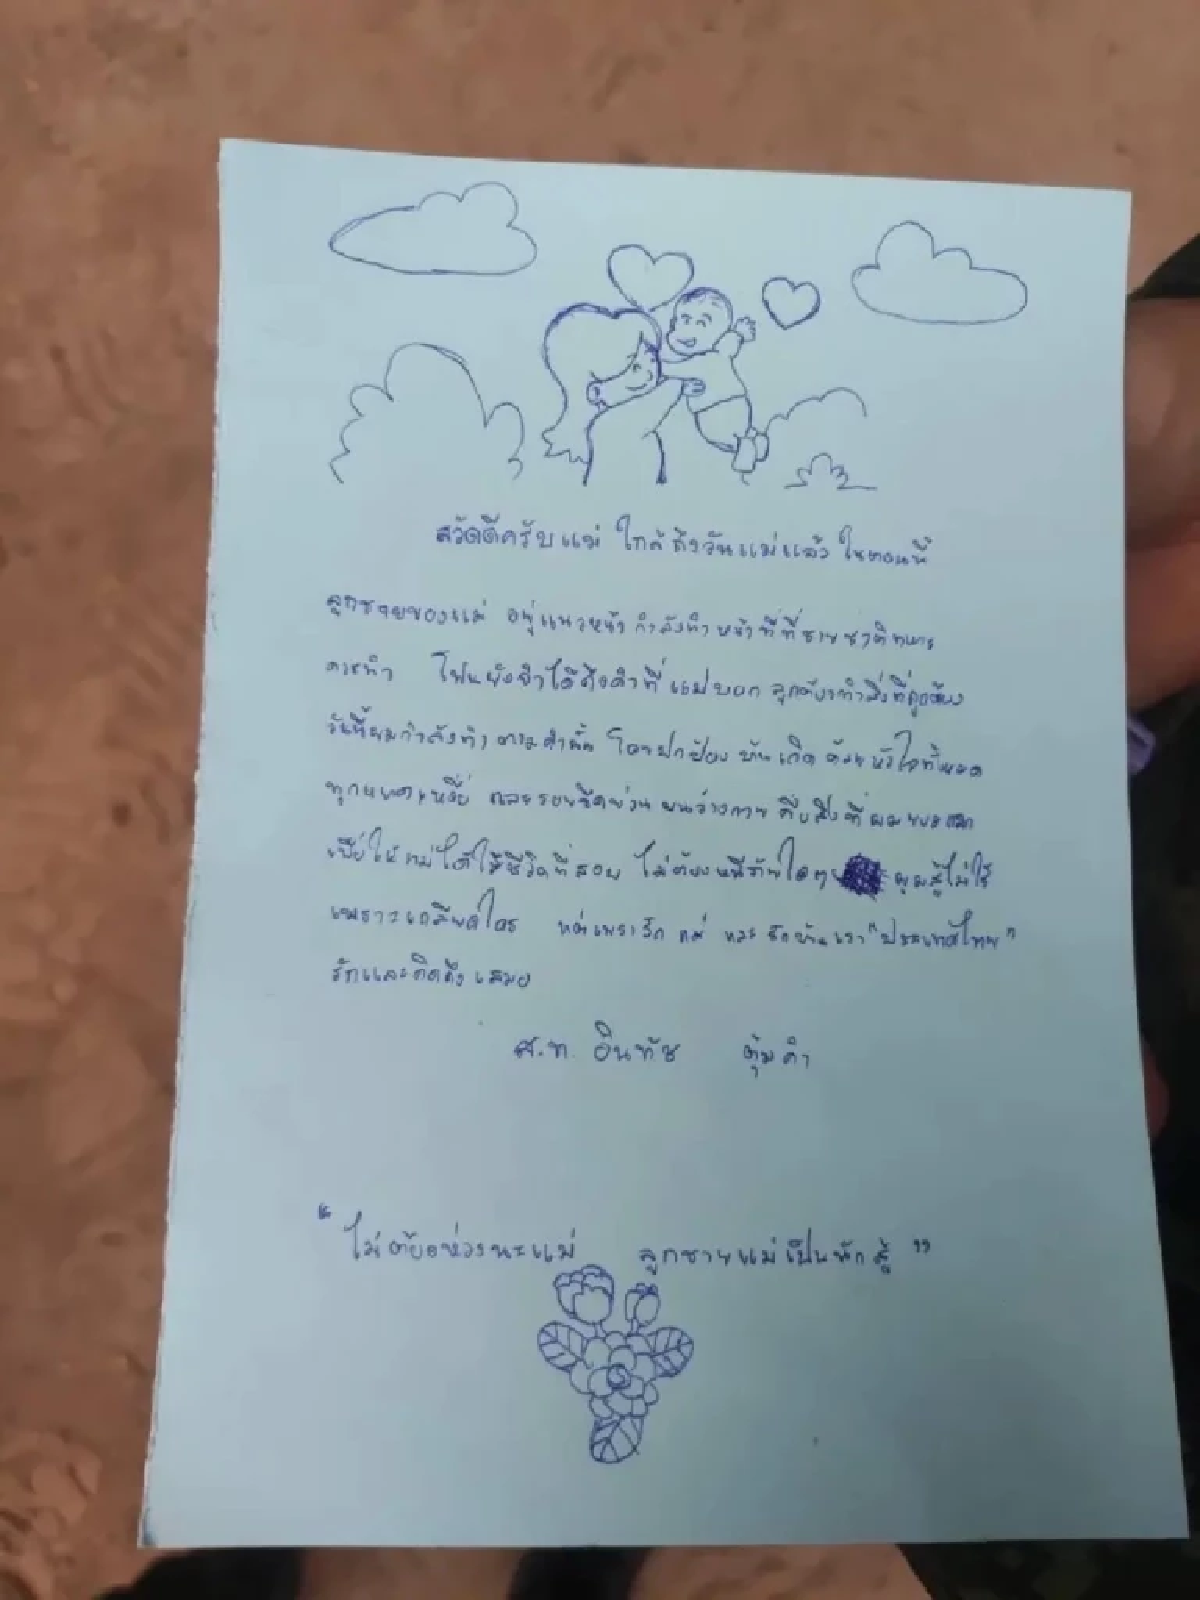 สวัดดีครับแม่ ใกล้ถึงวันแม่แล้ว ในตอนนี้
ลูกชายของแม่ อยู่แนวหน้า กำลังทำหน้าที่ที่ชายชาติทหาร
ควรทำ โฟนยังจำได้ถึงคำที่ แม่บอก ลูกต้องทำสิ่งที่ถูกต้อง
วันนี้ผมกำลังทำ ตามคำนั้น โดยปกป้อง บ้านเกิด ด้วย หัวใจทั้งหมด
ทุกหยาดเหงื่อ และรอยขีดข่วน บนร่างกาย คือสิ่งที่ ผมยอมแลก
เพื่อให้แม่ได้ใช้ชีวิตที่สงบ ไม่ต้องหนีภัยใดๆ ผมสู้ไม่ใช่
เพราะเกลียดใคร แต่เพราะรัก แม่ และ รักบ้านเรา "ประเทศไทย"
รักและคิดถึง เสมอ
ส.ท. อินทัช ตุ้มคำ
" ไม่ต้องห่วงนะแม่ ลูกชายแม่เป็นนักสู้ "